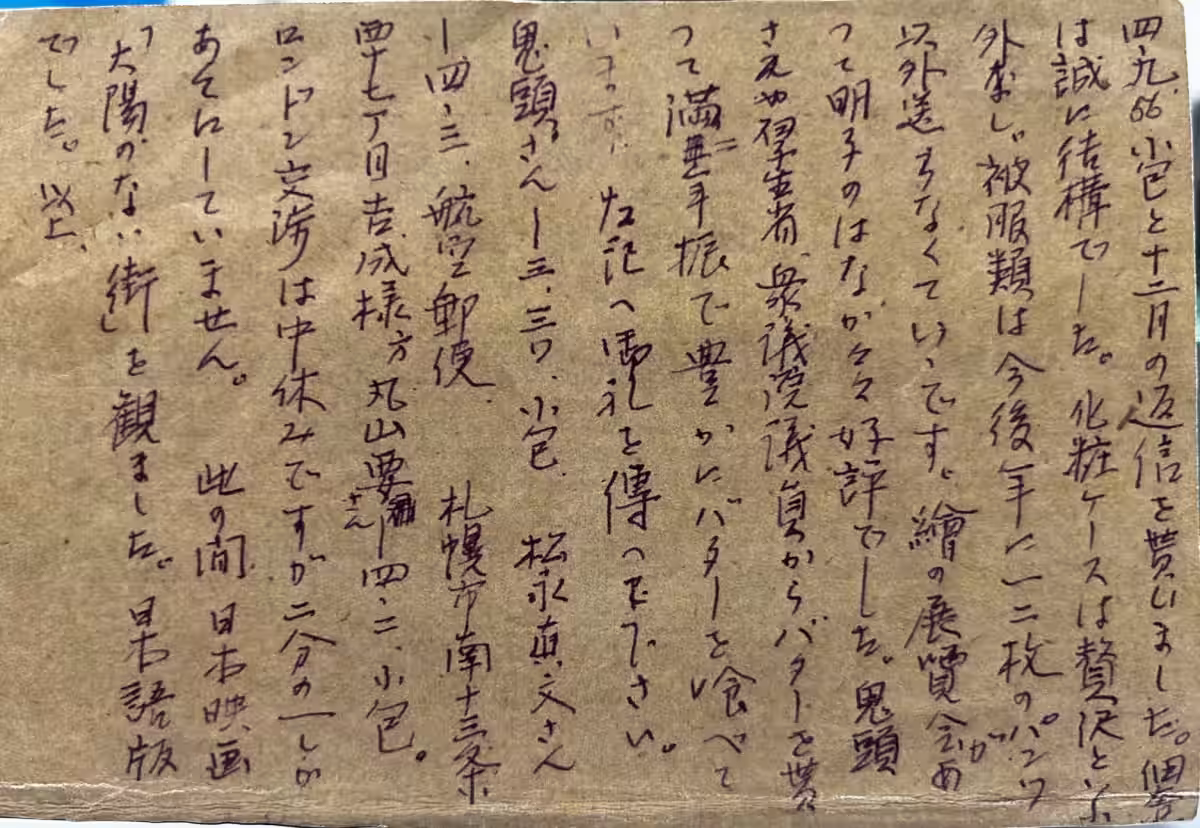 四九、66小包と十二月の返信を貰いました。個
は誠に結構でした。化粧ケースは贅沢といふ
外なし。被服類は今後年に一二枚のパンツ
以外送らなくていゝです。繪の展覽会があ
つて明子のはなか々々好評でした。鬼頭
さんや厚生省、衆議院議員からバターを貰
つて満三年振で豊かにバターを喰べて
います。左記へ御礼を傳へて下さい。
鬼頭さん―三、三〇、小包、松永真文さん
―四、三、航空郵便、札幌市南十三条
西十七丁目吉成様方丸山要さん―四、二、小包。
ロンドン交渉は中休みですが二分の一しか
あてにしていません。此の間、日本映画
「太陽のない街」を観ました。日本語版
でした。以上、